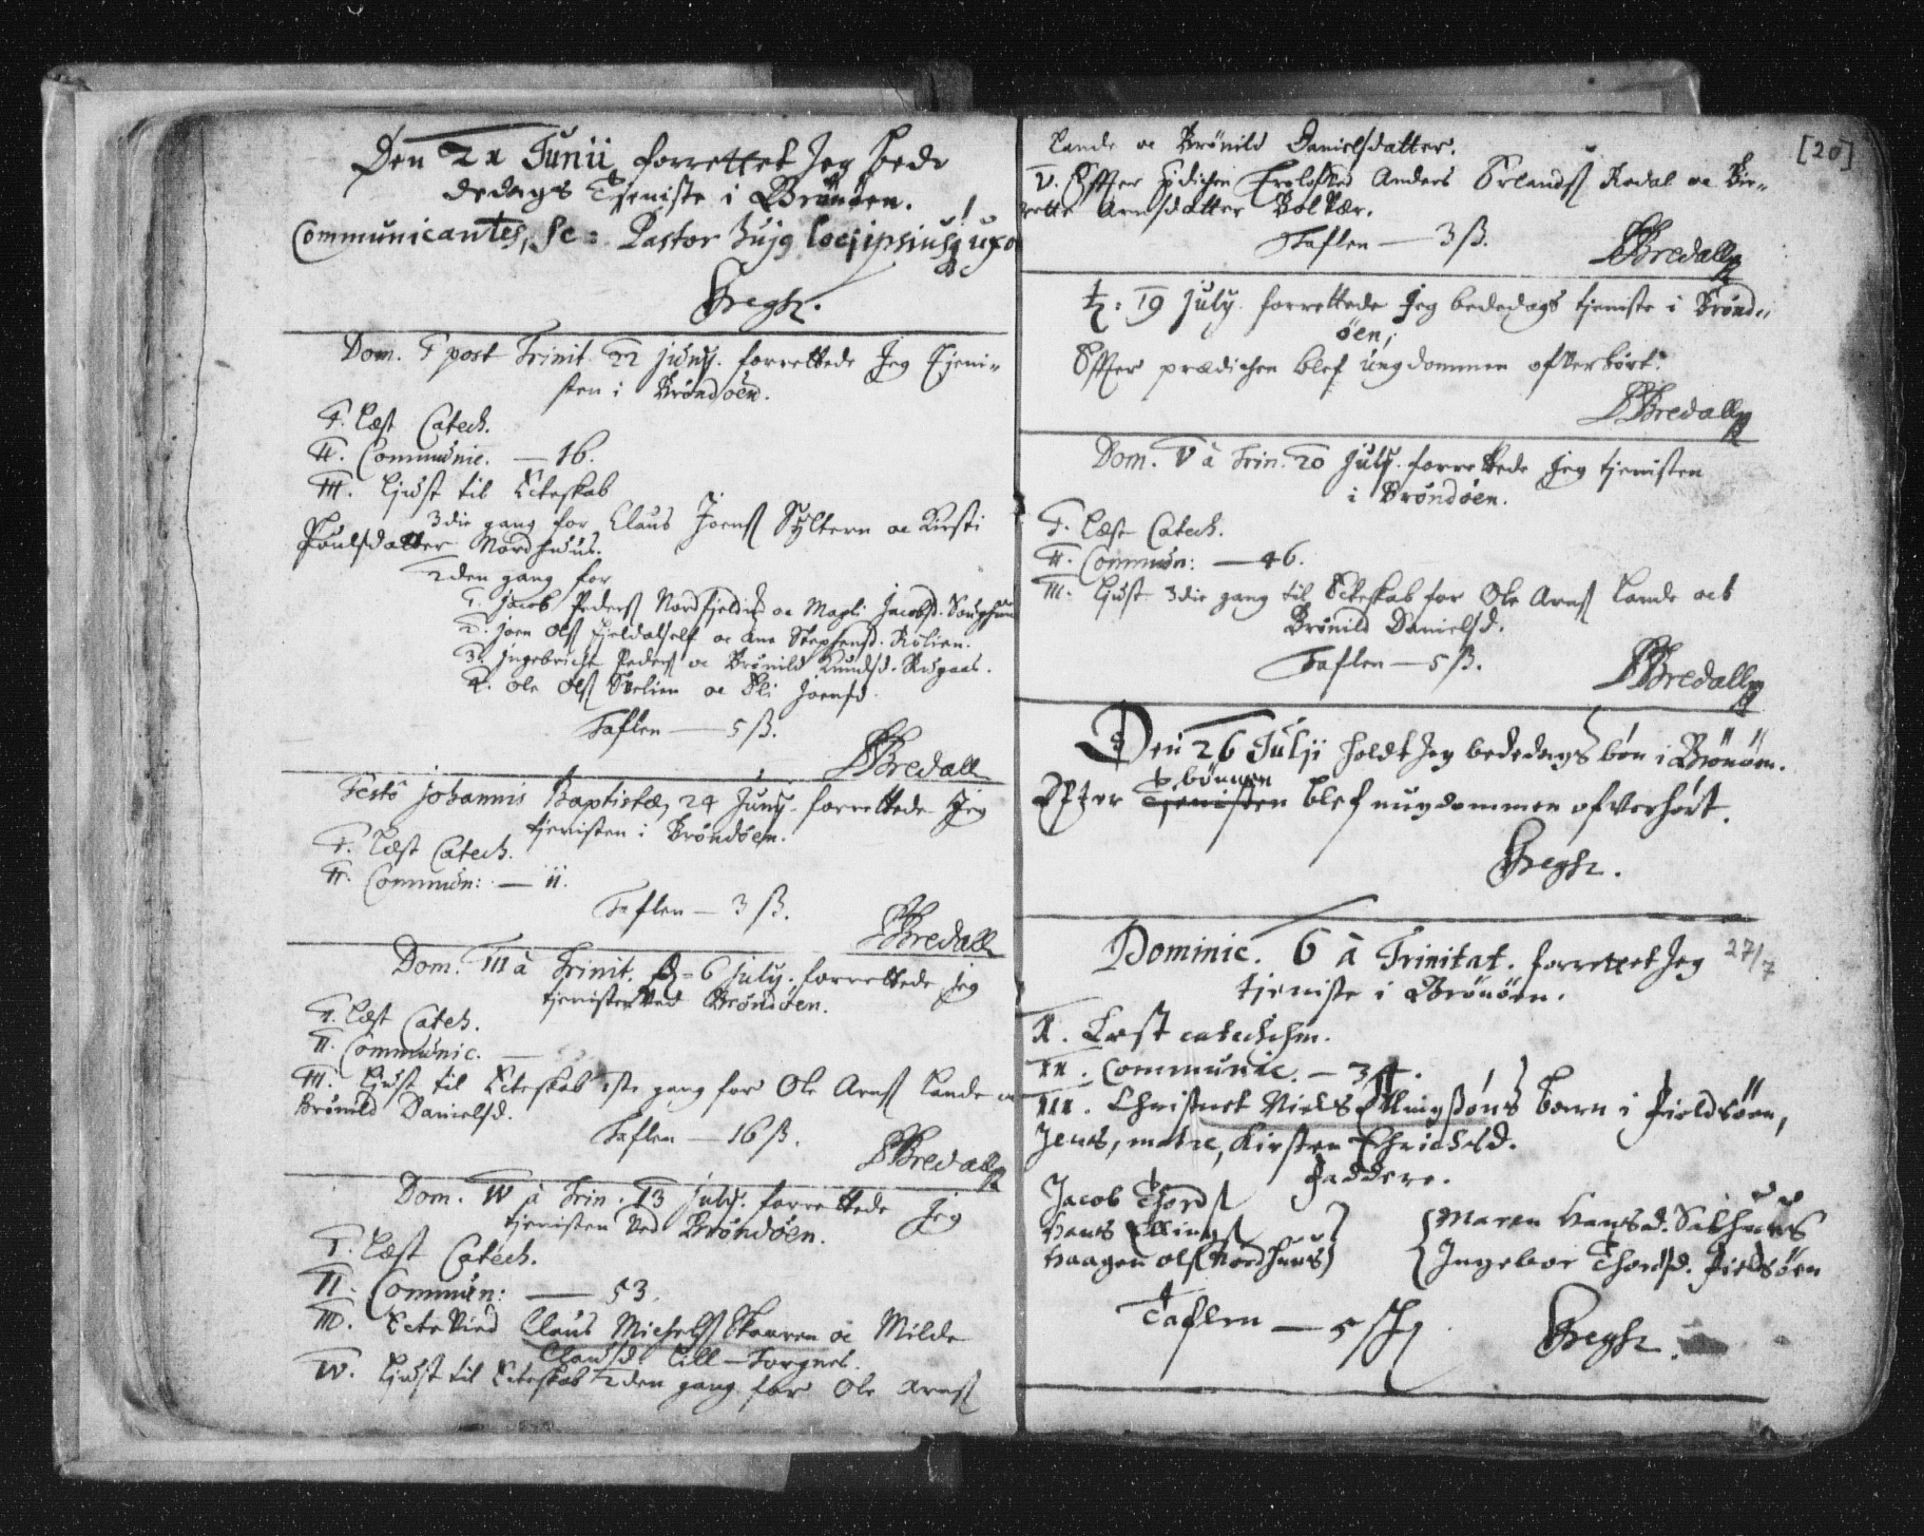 Den 21 Junii forrettet Jeg bede
dedags Tjeniste i Brönöen.
Communicantes, sc: Pastor hujg loci ipsiusq uxor
Dom. I post Trinit. 22 Junij. forrettede Jeg Tjeni-
sten i Bröndöen.
I. Læst Catech.
II. Communic. — 16.
III. Liust til Ecteskab
3die gang for Claus Joens Syltern oc Kirsti
Poulsdatter Nordhuus.
2den gang for
1. Jacob Peders Nordfjeldin oc Magli Jacobsd.
2. Joen Ols Fjeldalself oc Ane Stephensd.
3. Ingebricht Peders oc Brönild Knudsd.
4. Ole Ols oc Eli Joensd.
Taflen — 5 ß.
Bredall
Festo Johannis Baptistæ, 24 Junij forrettede Jeg
tjenisten i Bröndöen.
I. Læst Catech.
II. Commun: — 11.
Taflen — 3 ß.
Bredall
Dom. III à Trinit. 6 July. forrettede Jeg
tjenisten ved Bröndöen.
I. Læst Catech.
II. Communic. —
III. Liust til Ecteskab 1ste gang for Ole Arns Lande oc
Brönild Danielsd.
Taflen — 16 ß.
Bredall
Dom. IV à Trin. 13 July. forrettede Jeg
tjenisten ved Bröndöen.
I. Læst Catech.
II. Commun: — 53.
III. Ectevied Claus Michels Skaaren oc Milde
Clausd. Lill-Torgnes.
IV. Liust til Ecteskab 2den gang for Ole Arns
[20]
Lande oc Brönild Danielsdatter.
V. Efter Prædichen Trolofved Anders Erlands oc Bir-
rette Arnsdatter
Taflen — 3 ß.
Bredall
19 July. forrettede Jeg bededags tjeniste i Brönd-
öen;
Efter prædichen blef ungdommen ofverhört.
Bredall
Dom. V à Trin. 20 July. forrettede Jeg tjenisten
i Bröndöen.
I. Læst Catech.
II. Commun: — 46.
III. Liust 3die gang til Ecteskab for Ole Arns Lande och
Brönild Danielsd.
Taflen — 5 ß.
Bredall
Den 26 Julji holdt Jeg bededags bön i Brönöen.
bönnen
Efter Tjenisten blef ungdommen ofverhört.
Dominic. 6 à Trinitat. forrettet Jeg 27/7
tjeniste i Brönöen.
I. Læst catechism.
II. Communic. — 34.
III. Christnet Niels Ellingsöns barn i Fieldsöen,
Jens, matre, Kirsten Chrichsd.
Faddere.
Jacob Thords
Hans Ellings
Haagen Ols Nordhuus
Maren Hansd. Salhuus
Ingebor Thordsd. Fieldsöen
Taflen — 5 ß